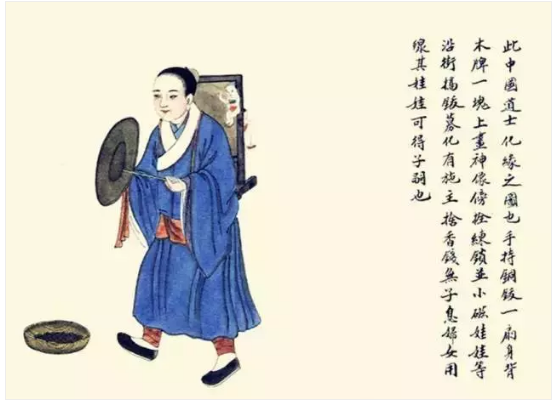 此中國道士化緣之圖也手持銅鈸一扇身背
木牌一塊上畫神像傍拴練鎖並小磁娃娃等
沿街搗鈸募化有施主捨香錢無子息婦女用
線其娃娃可得子嗣也